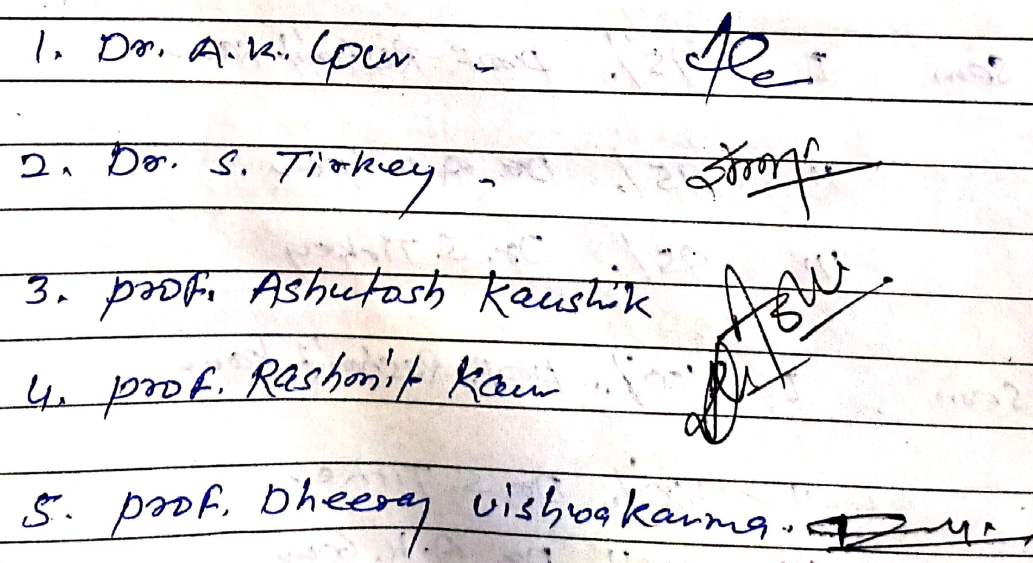 1. Dr. A.K. Gour -
2. Dr. S. Tirkey -
3. prof. Ashutosh Kaushik
4. prof. Rashmit Kaur
5. prof. Dheeraj vishwakarma.